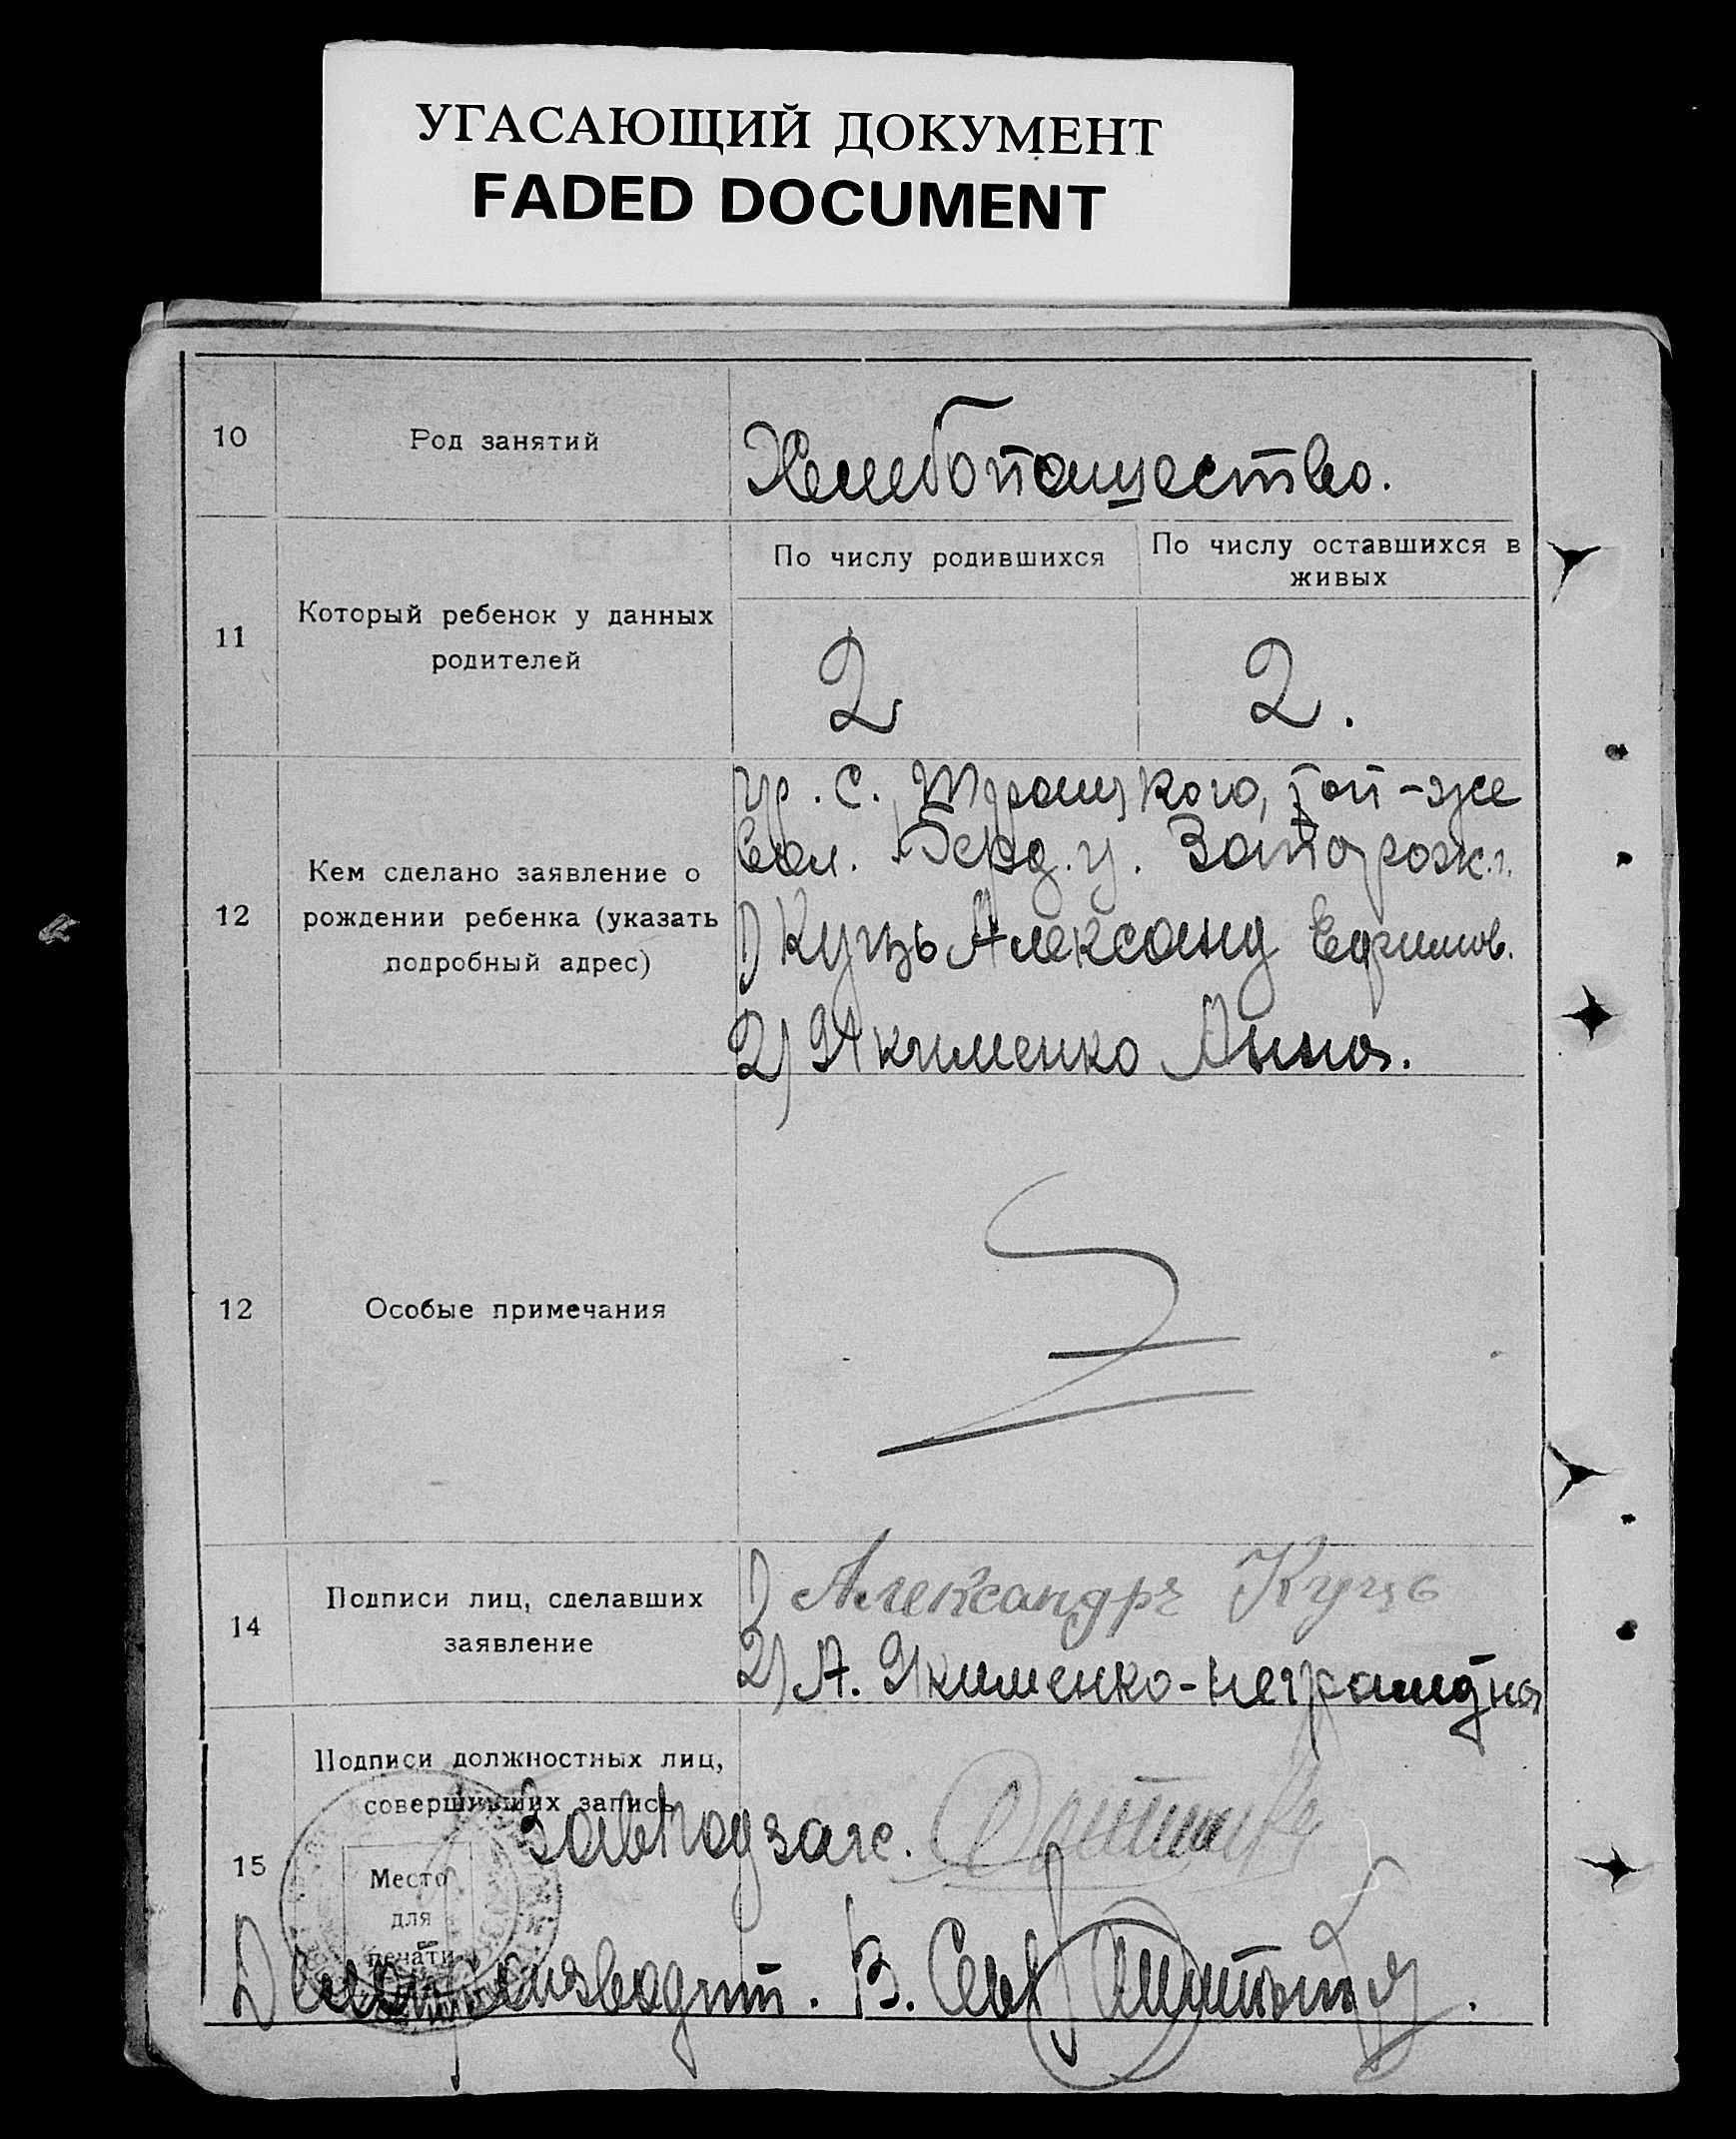 УГАСАЮЩИЙ ДОКУМЕНТ
FADED DOCUMENT
10
Род занятий
Хлебопашество.
11
Который ребенок у данных
родителей
По числу родившихся
По числу оставшихся в
живых
2
2.
12
Кем сделано заявление о
рождении ребенка (указать
подробный адрес)
гр. с. Троицкого, той-же
вол. Берд. у. Запорож. г.
1) Куць Александ Ефимов.
2) Якименко Анна.
12
Особые примечания
14
Подписи лиц, сделавших
заявление
1) Александръ Куць
2) А. Якименко-неграмотна
15
Подписи должностных лиц,
совершивших запись
Завподзагс.
Место
для
печати
Делопроизводит. В.